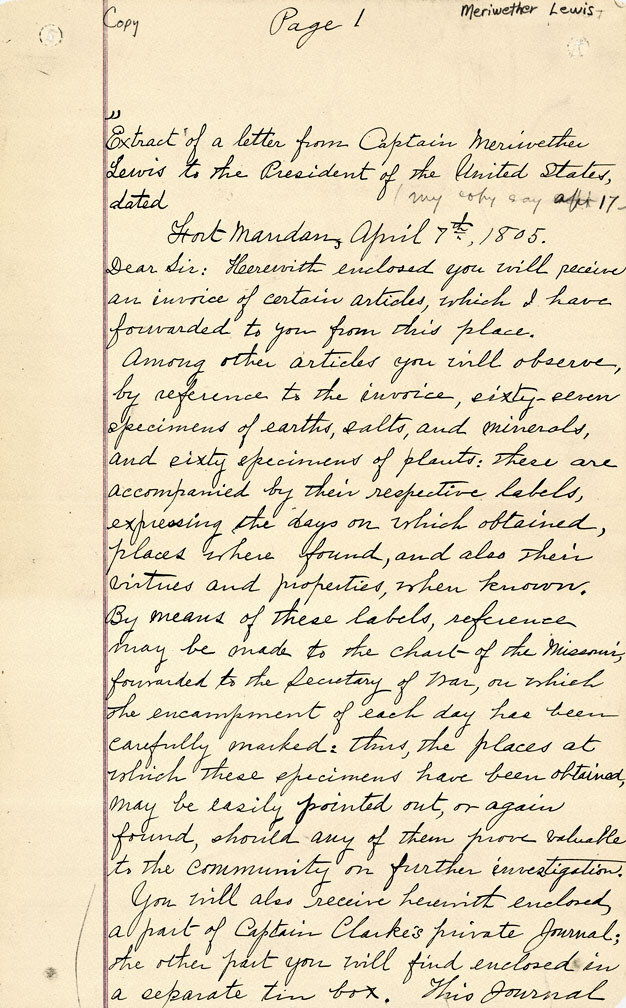 Copy
Page 1
Meriwether Lewis
"
Extract of a letter from Captain Meriwether
Lewis to the President of the United States,
dated
(my copy say apr 17
Fort Mandan, April 7th, 1805.
Dear Sir: Herewith enclosed you will receive
an invoice of certain articles, which I have
forwarded to you from this place.
Among other articles you will observe,
by reference to the invoice, sixty-seven
specimens of earths, salts, and minerals,
and sixty specimens of plants: these are
accompanied by their respective labels,
expressing the days on which obtained,
places where found, and also their
virtues and properties, when known.
By means of these labels, reference
may be made to the chart of the Missouri,
forwarded to the Secretary of War, on which
the encampment of each day has been
carefully marked: thus, the places at
which these specimens have been obtained,
may be easily pointed out, or again
found, should any of them prove valuable
to the community on further investigation.
You will also receive herewith enclosed,
a part of Captain Clarke's private Journal;
the other part you will find enclosed in
a separate tin box. This Journal